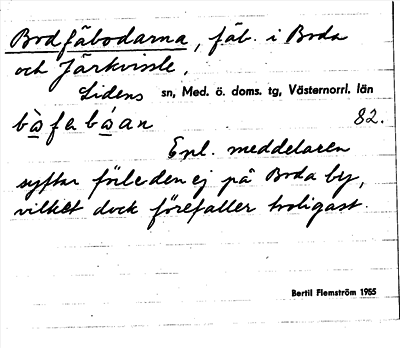 Bodfäbodarna, fäb. i Boda
och Järkvissle,
Lidens sn, Med. ö. doms. tg, Västernorrl. län
bà̱fe bá̱an 82.
Enl. meddelaren
syftar förleden ej på Boda by,
vilket dock förefaller troligast.
Bertil Flemström 1955